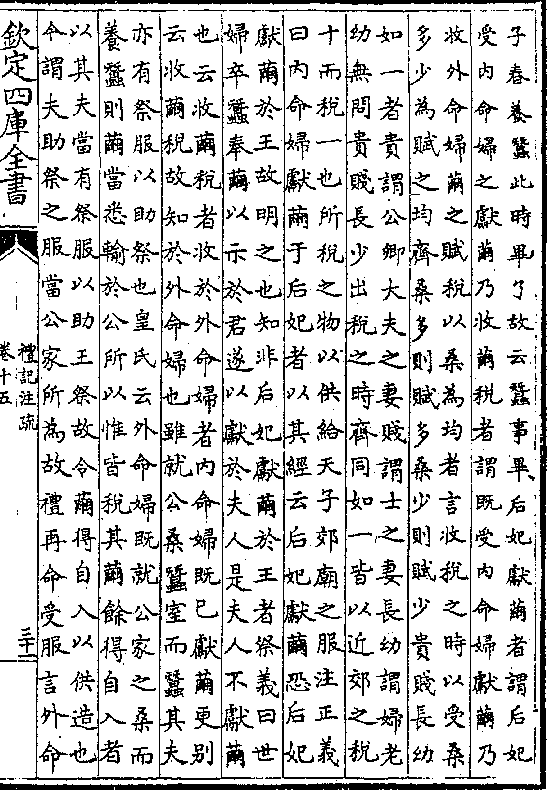 子春養蠶此時畢了故云蠶事畢后妃獻繭者謂后妃
受内命婦之獻繭乃收繭稅者謂既受内命婦獻繭乃
收外命婦繭之賦稅以桑為均者言收稅之時以受桑
多少為賦之均齊桑多則賦多桑少則賦少貴賤長幼
如一者貴謂公卿大夫之妻賤謂士之妻長幼謂婦老
幼無問貴賤長少出稅之時齊同如一皆以近郊之稅
十而稅一也所稅之物以供給天子郊廟之服注正義
曰内命婦獻繭于后妃者以其經云后妃獻繭恐后妃
獻繭於王故明之也知非后妃獻繭於王者祭義曰世
婦卒蠶奉繭以示於君遂以獻於夫人是夫人不獻繭
也云收繭稅者收於外命婦者内命婦既已獻繭更别
云收繭稅故知於外命婦也雖就公桑蠶室而蠶其夫
亦有祭服以助祭也皇氏云外命婦既就公家之桑而
養蠶則繭當悉輸於公所以惟皆稅其繭餘得自入者
以其夫當有祭服以助王祭故令繭得自入以供造也
今謂夫助祭之服當公家所為故禮再命受服言外命
欽定四庫全書
禮記注疏
卷十五
三十一